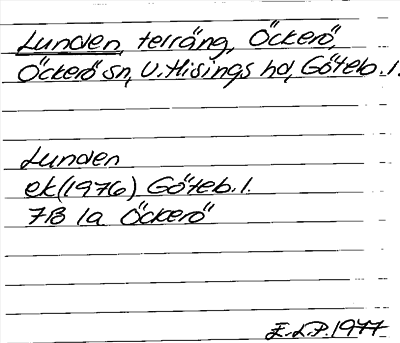 Lunden, terräng, Öckerö,
Öckerö sn, V. Hisings hd, Göteb. l.
Lunden
ek (1976) Göteb. l.
7B 1a Öckerö
E.L.P. 1977